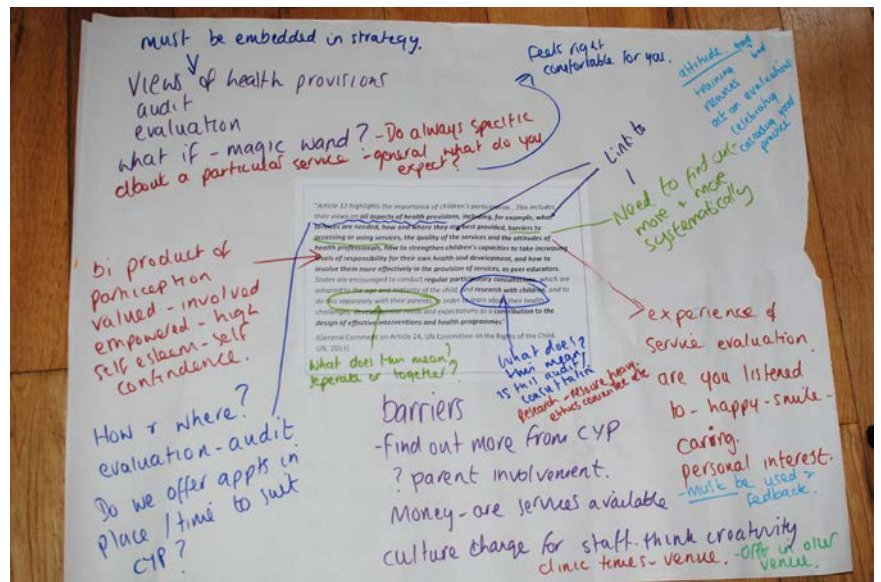 must be embedded in strategy.
Views of health provisions
audit
evaluation
what if - magic wand? - Do always specific
about a particular service - general what do you
expect?
Feels right
comfortable for you.
attitude
training
act on evaluation
celebrating
good
practice
Link to
Need to find out
more + more
systematically
"Article 12 highlights the importance of children's participation.. This includes
their views on all aspects of health provisions, including, for example, what
services are needed, how and where they are best provided, barriers to
accessing or using services, the quality of the services and the attitudes of
health professionals, how to strengthen children's capacities to take increasing
levels of responsibility for their own health and development, and how to
involve them more effectively in the provision of services, as peer educators.
States are encouraged to conduct regular participatory consultations, which are
adapted to the age and maturity of the child, and research with children, and to
do this separately with their parents, in order to learn about their health
challenges, developmental needs and expectations as a contribution to the
design of effective interventions and health programmes"
(General Comment on Article 24, UN Committee on the Rights of the Child:
UN, 2013)
bi product of
valued - involved
empowered - high
self esteem - self
What does this mean?
seperate or together?
What does
this mean
is this audit/
ethics committee etc
experience of
service evaluation.
are you listened
to - happy - smile -
caring.
personal interest.
- must be used &
feedback.
How & where?
evaluation - audit
Do we offer appts in
place / time to suit
CYP?
barriers
- find out more from CYP
? parent involvement.
Money - are services available
culture change for staff - think creativity
clinic times - venue. - Offer in other
venue.